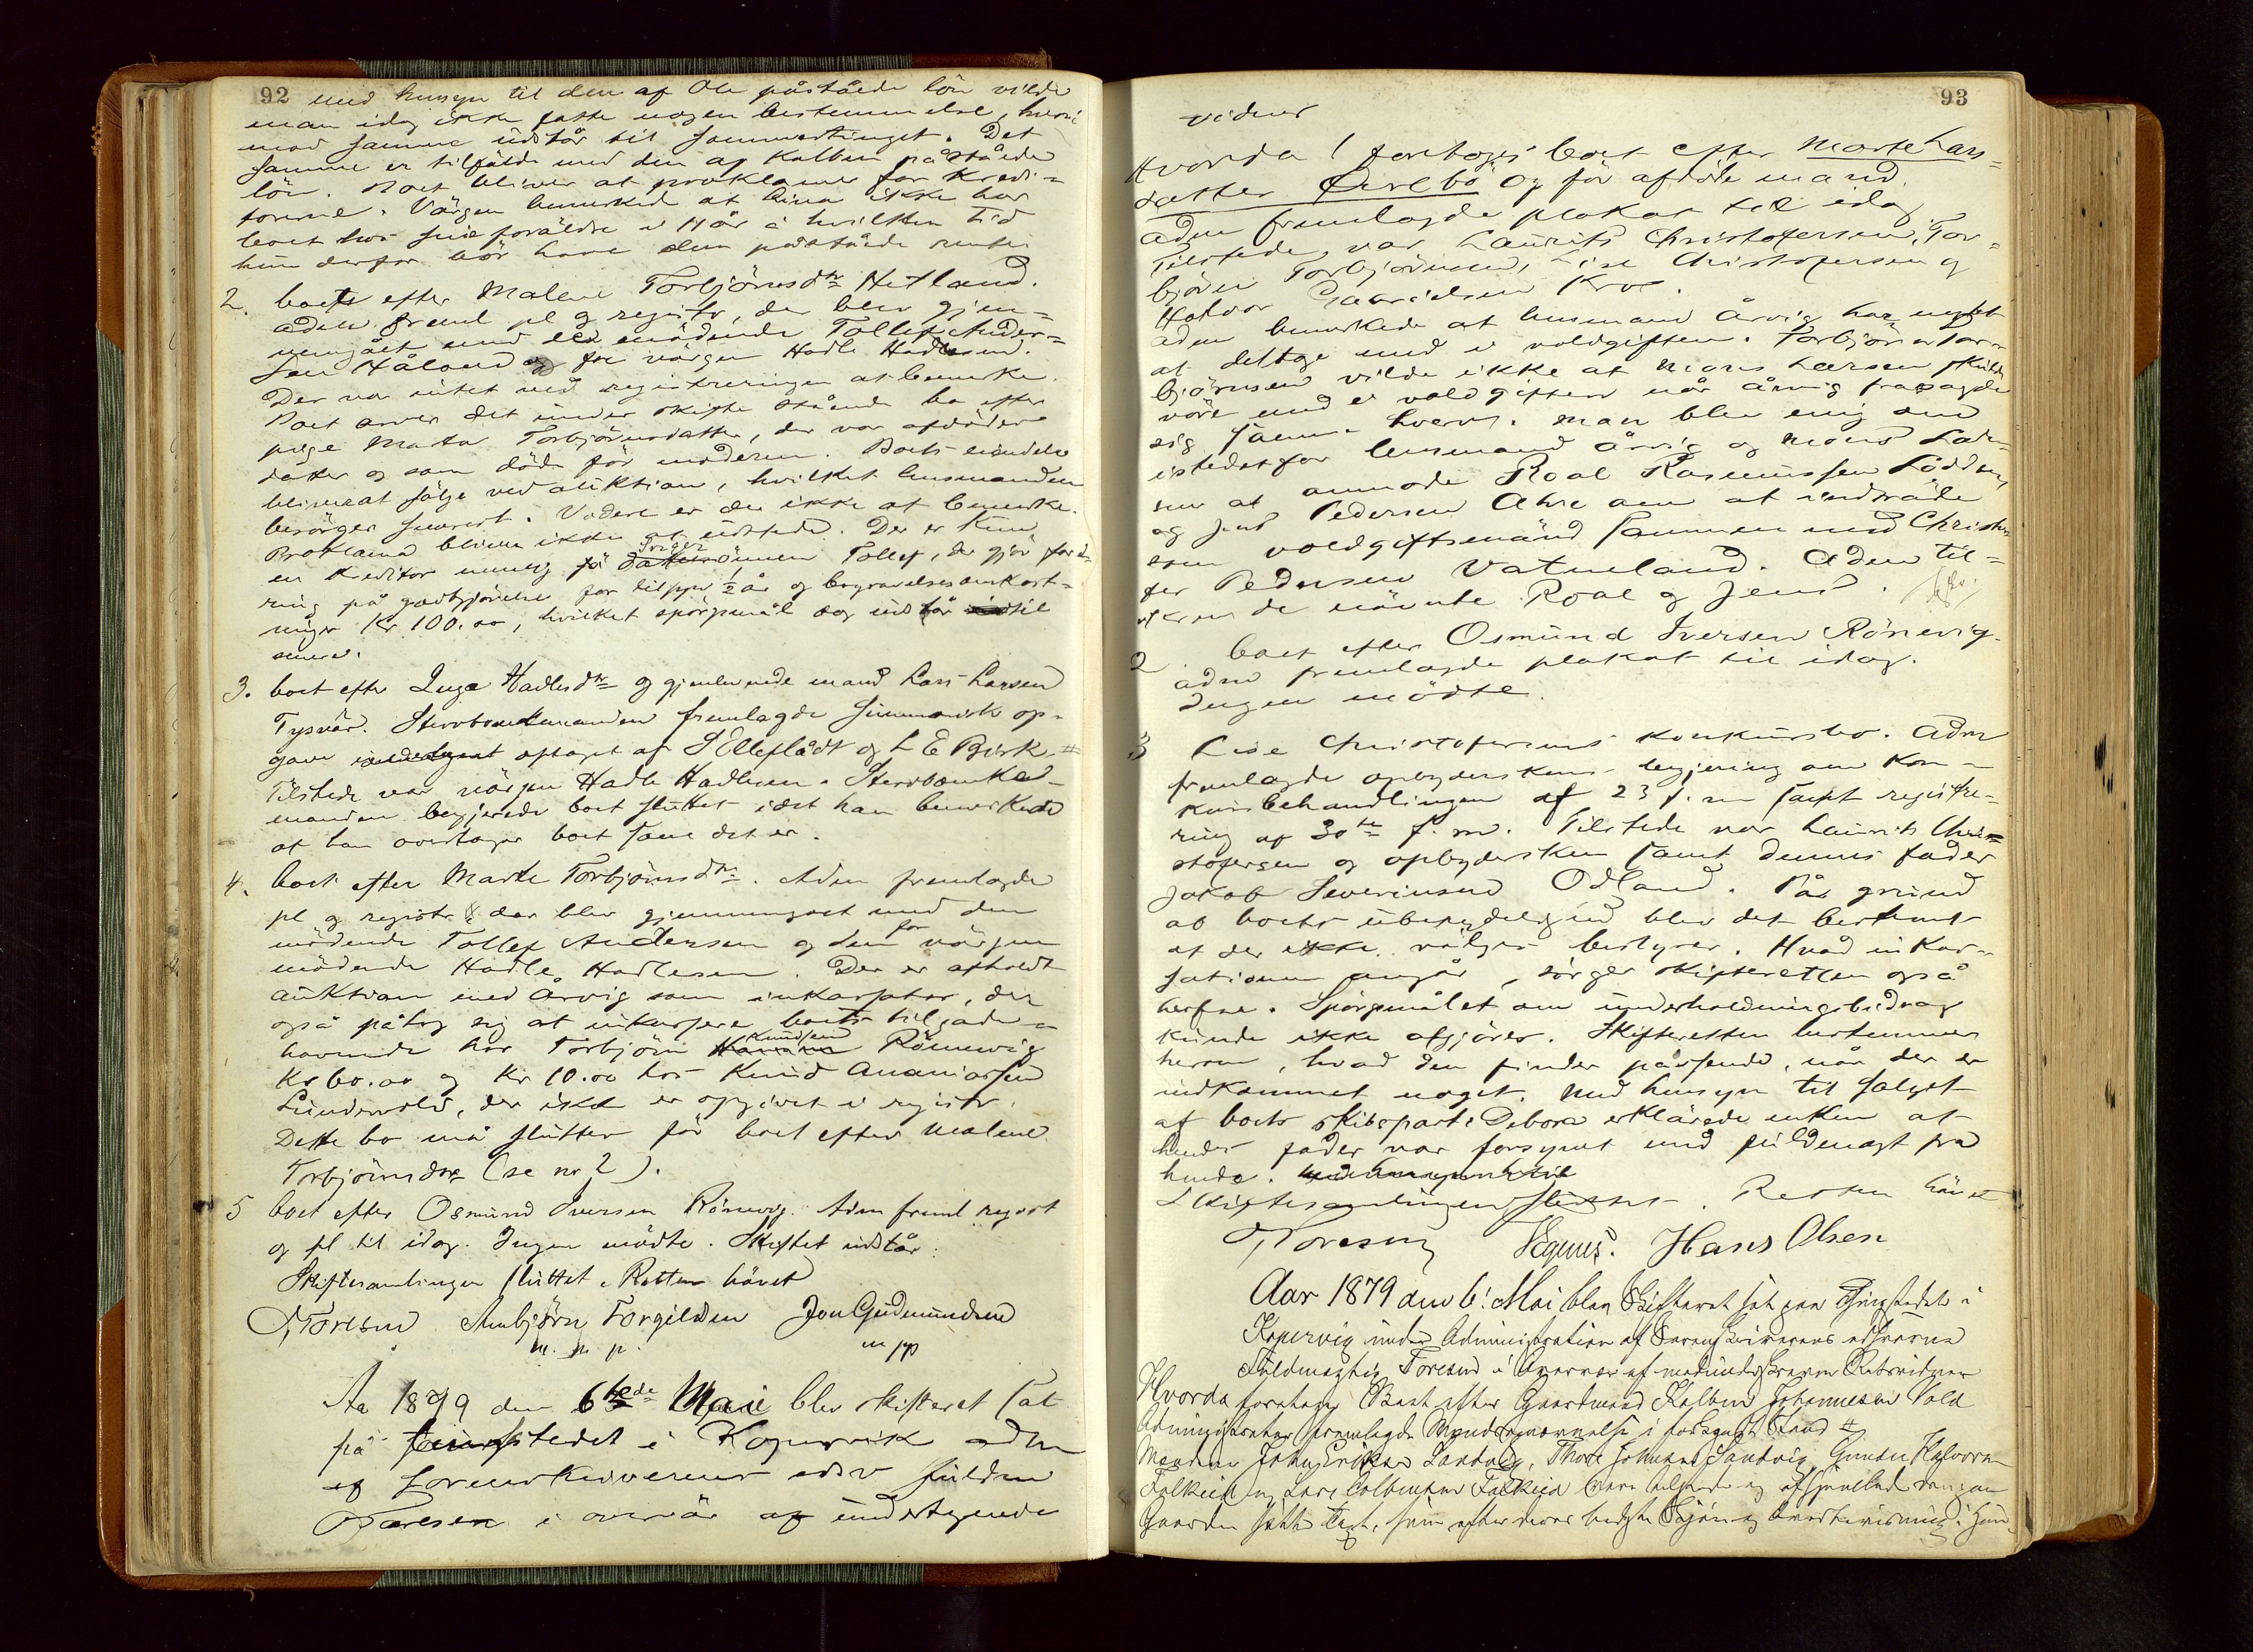 92 med hensyn til den af Ole påståede lön vilde
man idag ikke fatte nogen bestemmelse, hvori
mod samme udstår til sommertinget. Det
samme er tilfälde med den af Kolben påståede
lön. Boet bliver at proklamere for kredi-
torerne. Värgen bemärkede at Lina ikke har
boet hos sine foräldre i 11 år i hvilken tid
hun derfor bör have den påståede rente.
2. boet efter Malene Torbjörnsdtr Hetland.
adm freml pl og registr, der blev gjen-
nemgået med den mödende Tollef Ander-
sen Håland og for värgen Hadle Hadlesen.
Der var intet ved registreringen at bemerke.
Boet arver det under skifte stående bo efter
pige Marta Torbjörnsdatter, der var afdödes
datter og som döde för moderen. Boets eiendele
bliver at sälge ved auktion, hvilket lensmanden
besörger snarest. Videre er der ikke at bemerke.
Proklama bliver ikke at udstede. Der er kun
en kreditor nemlig Tollef, der gjör ford-
ring på godtgjörelse for tilsyn ½ år og begravelsesomkost-
ninger Kr 100.00, hvilket spörgsmål dog udstår til
senere.
3. boet efter Inga Hadlesdtr og gjenlevende mand Lars Larsen
Tysvär. Stervboenkemanden fremlagde summarisk op-
gave optaget af S Elleflådt og L E Birk
Tilstede var värgen Hadle Hadlesen. Stervboenke-
manden begjerede boet sluttet idet han bemerkede
at han overtager boet som det er.
4. boet efter Marte Torbjörnsdtr. Adm fremlagde
pl og registr der blev gjennemgået med den
mödende Tollef Andersen og den for värgen
mödende Hadle Hadlesen. Der er afholdt
auktion med Årvig som inkassator, der
også påtog sig at inkassere boets tilgode-
havende hos Torbjörn Knudsen Rönevig
Kr 60.00 og Kr 10.00 hos Knud Ananiassen
Sundevold, der ikke er opgivet i registr.
Dette bo må sluttes för boet efter Malene
Torbjörnsdtr (se nr 2).
5 boet efter Osmund Iversen Rönevig. Adm freml registr
og pl til idag. Ingen mödte. Skiftet udstår.
Skiftesamlingen sluttet. Retten hävet
Toresen Asbjörn Torgilsen Jon Gudmundsen
m. p. m pp
År 1879 den 6te Mai blev skifteret sat
på tingstedet i Kopervik adm
af Sorenskriverens edsv fuldm
Toresen i overvär af undertegnede
93
vidner
Hvorda 1 foretoges boet efter Marte Lars-
datter Örebö og för afdöde mand.
adm fremlagde plakat til idag
Tilstede var Laurits Christofersen, Tor-
björn Torbjörnsen, Lise Christofersen og
Halvor Gabrielsen Kroe.
adm bemerkede at lensmand Årvig har negtet
at deltage med i voldgiften. Torbjörn Tor-
björnsen vilde ikke at Mons Larsen skulde
väre med i voldgiften når Årvig frasagde
sig samme hverv. Man blev enig om
istedetfor lensmand Årvig og Mons Lar-
sen at anmode Roal Rasmussen Lödden,
og Jens Pedersen Ahre om at indträde
som voldgiftsmänd sammen med Christof-
fer Pedersen Vatneland. Adm til-
skrev de nävnte Roal og Jens.
2. boet efter Osmund Iversen Rönevig.
adm fremlagde plakat til idag.
Ingen mödte.
3 Lise Christofersens konkursbo. Adm
fremlagde opbyderskens begjering om kon-
kursbehandlingen af 23 f. m samt registre-
ring af 30te f. m. Tilstede var Laurits Chri-
stofersen og opbydersken samt dennes fader
Jakob Severinsen Odland. På grund
af boets ubetydelighed blev det bestemt
at der ikke välges bestyrer. Hvad inkas-
sationen angår, sörger skifteretten også
herfor. Spörgsmålet om underholdningsbidrag
kunde ikke afgjöres. Skifteretten bestemmer
herom, hvad den finder passende, når der er
indkommet noget. Med hensyn til salget
af boets skibspart i Debora erklärede enken at
hendes fader var forsynet med fuldmagt fra
hende.
Skiftesamlingen sluttet. Retten hävet
Toresen Hans Olsen
Aar 1879 den 6' Mai blev Skifteret sat paa Thingstedet i
Kopervig under Administration af Sorenskriverens edsvorne
Fuldmægtig Toresen i Overvær af medunderskrevne Retsvidner
Hvorda foretoges Boet efter Gaardmand Kolben Johannesen Vola
Administrator fremlagde Mændsopnævnelse i forkyndt Stand
Mændene John Eriksen Sandvig, Thore Johannes Sandvig, Gunder Halvorsen
Falkeid og Lars Colbensen Falkeid vare tilstede og afhjemlede den paa
Gaarden satte Taxt, som efter deres bedste Skjøn og Overbevisning i Hen-